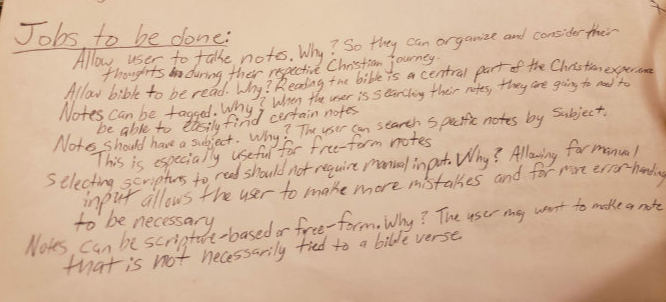 Jobs to be done:
Allow user to take notes. Why? So they can organize and consider their
thoughts during their respective Christian journey.
Allow bible to be read. Why? Reading the bible is a central part of the Christian experience
Notes can be tagged. Why? When the user is searching their notes, they are going to need to
be able to easily find certain notes
Notes should have a subject. Why? The user can search specific notes by subject.
This is especially useful for free-form notes
Selecting scripture to read should not require manual input. Why? Allowing for manual
input allows the user to make more mistakes and for more error-handling
to be necessary
Notes can be scripture-based or free-form. Why? The user may want to make a note
that is not necessarily tied to a bible verse.